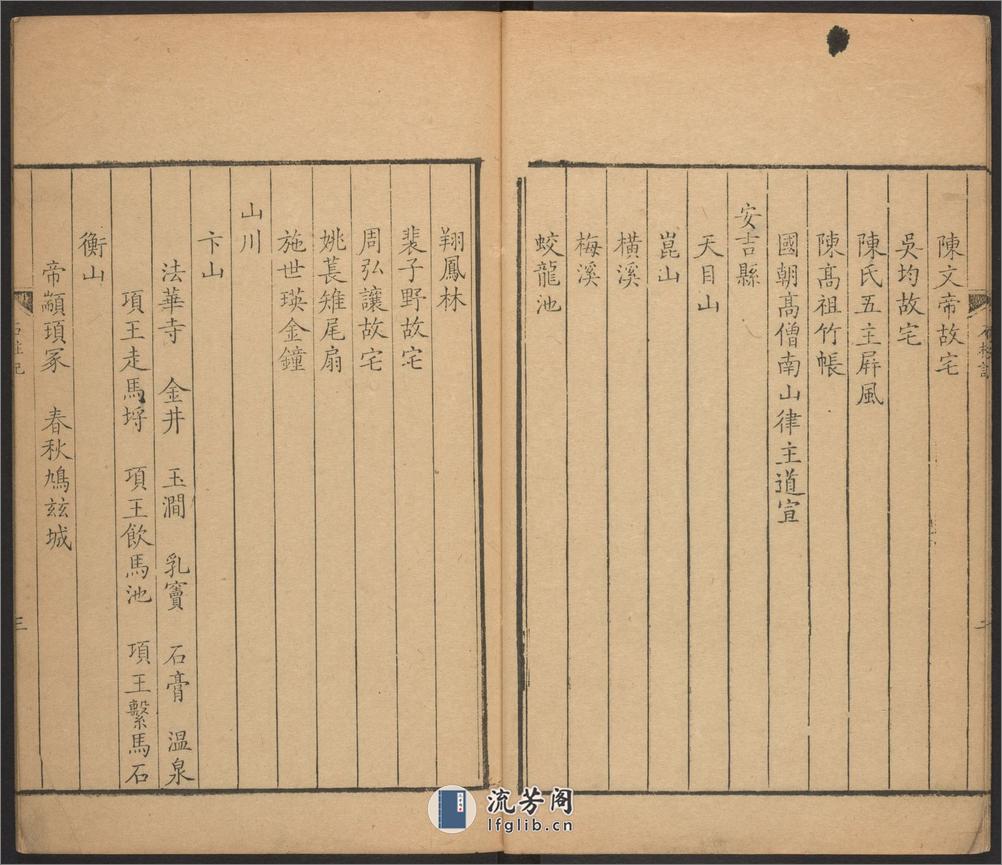 陳文帝故宅
吳均故宅
陳氏五主屏風
陳髙祖竹帳
國朝髙僧南山律主道宣
安吉縣
天目山
崑山
橫溪
梅溪
蛟龍池
二
翔鳳林
裴子野故宅
周弘讓故宅
姚萇雉尾扇
施世瑛金鐘
山川
卞山
法華寺　金井　玉澗　乳竇　石膏　温泉
項王走馬埒　項王飲馬池　項王繫馬石
衡山
帝顓頊冢　春秋鳩兹城
石柱記
三
流芳阁
lfglib.cn